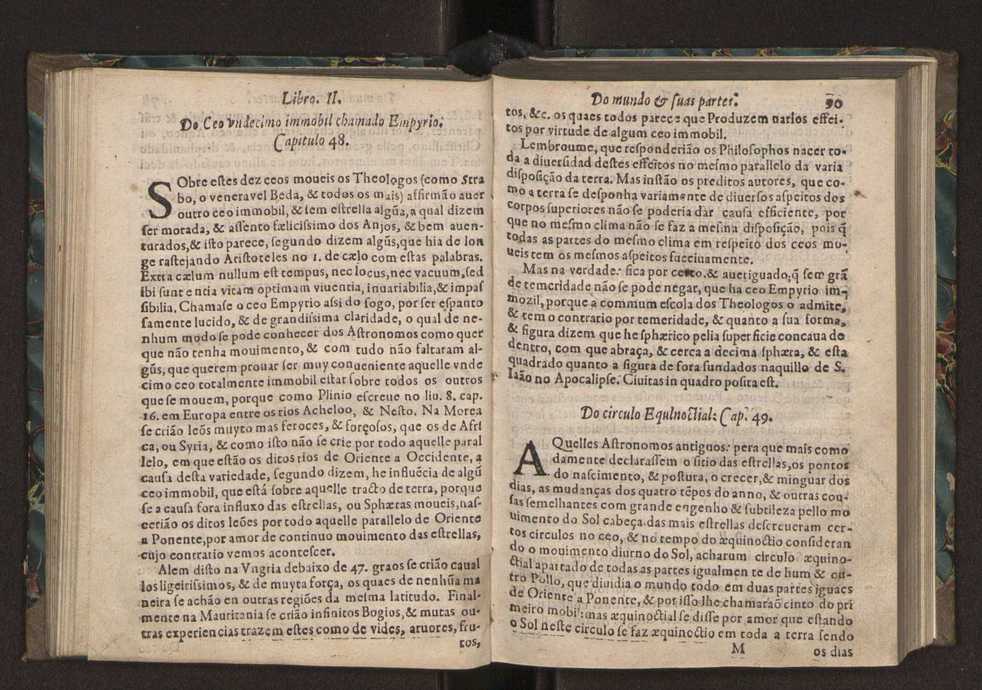 Libro. II.
Do Ceo vndecimo immobil chamado Empyrio.
Capitulo 48.
SObre estes dez ceos moueis os Theologos (como Stra
bo, o veneravel Beda, & todos os mais) affirmão auer
outro ceo immobil, & sem estrella algũa, a qual dizem
ser morada, & assento fælicissimo dos Anjos, & bem auen-
turados, & isto parece, segundo dizem algũs, que hia de lon
ge rastejando Aristoteles no 1. de cælo com estas palabras.
Extra cælum nullum est tempus, nec locus, nec vacuum, sed
ibi sunt entia vitam optimam viuentia, inuariabilia, & impas
sibilia. Chamase o ceo Empyrio assi do fogo, por ser espanto
samente lucido, & de grandissima claridade, o qual de ne-
nhum modo se pode conhecer dos Astronomos como quer
que não tenha mouimento, & com tudo não faltaram al-
gũs, que querem prouar ser muy conueniente aquelle vnde
cimo ceo totalmente immobil estar sobre todos os outros
que se mouem, porque como Plinio escreue no liu. 8. cap.
16. em Europa entre os rios Acheloo, & Nesto. Na Morea
se crião leõs muyto mas feroces, & forçosos, que os de Afri
ca, ou Syria, & como isto não se crie por todo aquelle paral
lelo, em que estão os ditos rios de Oriente a Occidente, a
causa desta variedade, segundo dizem, he influẽcia de algũ
ceo immobil, que está sobre aquelle tracto de terra, porque
se a causa fora influxo das estrellas, ou Sphæras moueis, nas-
cerião os ditos leões por todo aquelle parallelo de Oriente
a Ponente, por amor de continuo mouimento das estrellas,
cujo contratio vemos acontescer.
Alem disto na Vngria debaixo de 47. graos se crião caual
los ligeirissimos, & de muyta força, os quaes de nenhũa ma
neira se achão en outras regiões da mesma latitudo. Final-
mente na Mauritania se crião infinitos Bogios, & mutas ou-
tras experiencias trazem estes como de vides, aruores, fru-
tos,
Do mundo & suas partes. 90
tos, &c. os quaes todos parece que Produzem uarios effei-
tos por virtude de algum ceo immobil.
Lembroume, que responderião os Philosophos nacer to-
da a diuersidad destes effeitos no mesmo parallelo da varia
disposição da terra. Mas instão os preditos autores, que co-
mo a terra se desponha variamente de diuersos aspeitos dos
corpos superiores não se poderia dar causa efficiente, por
que no mesmo clima não se faz a mesma disposição, pois q̃
todas as partes do mesmo clima em respeito dos ceos mo-
ueis tem os mesmos aspeitos succinamente.
Mas na verdade fica por certo, & aueriguado, q̃ sem grã
de temeridade não se pode negar, que ha ceo Empyrio im-
mozil, porque a commum escola dos Theologos o admite,
& tem o contratio por temeridade, & quanto a sua forma,
& figura dizem que he sphærico pella superficie concaua de
dentro, com que abraça, & cerca a decima sphæra, & esta
quadrado quanto a figura de fora fundados naquillo de S.
Iaão no Apocalipse. Ciuitas in quadro posita est.
Do circulo Equinoctial: Cap. 49.
AQuelles Astronomos antiguos: pera que mais como
damente declarassem o sitio das estrellas, os pontos
do nascimento, & postura, o crecer, & minguar dos
dias, as mudanças dos quatro tẽpos do anno, & outras cou-
sas semelhantes com grande engenho & subtileza pello mo
uimento do Sol cabeça das mais estrellas descreueram cer-
tos circulos no ceo, & no tempo do æquinoctio consideran
do o mouimento diurno do Sol, acharum circulo æquino-
ctial apartado de todas as partes igualmente de hum & ou-
tro Pollo, que diuidia o mundo todo em duas partes iguaes
de Oriente a Ponente, & por isso lhe chamaraõ cinto do pri
meiro mobil: mas æquinoctial se disse por amor que estando
o Sol neste circulo se faz æquinoctio em toda a terra sendo
M os dias